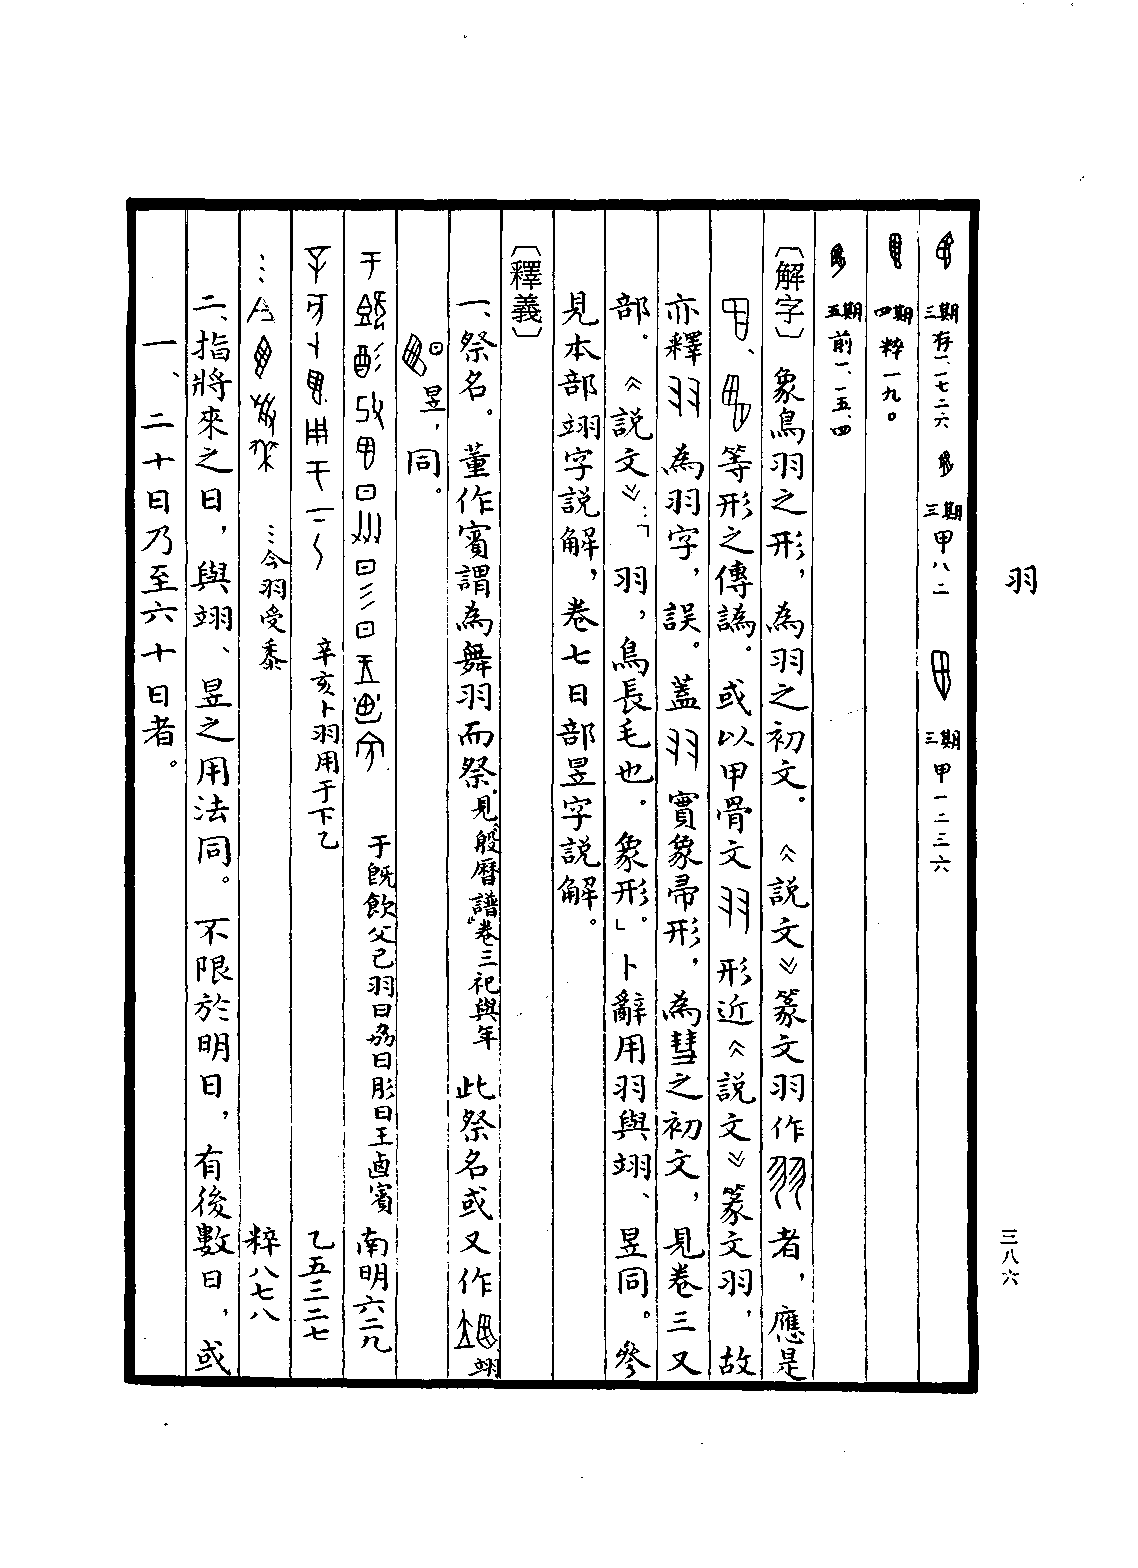 羽
三八六
三期 存二·一七二六 三期 甲八二 三期 甲一二三六
四期 粹一九。
五期 前一·一五·四
〔解字〕象鳥羽之形，為羽之初文。《說文》篆文羽作者，應是
、等形之傳譌。或以甲骨文形近《說文》篆文羽，故
亦釋為羽字，誤。蓋實象帚形，為彗之初文，見卷三又
部．《說文》：「羽，鳥長毛也．象形。」卜辭用羽與翊、昱同。參
見本部翊字說解，卷七日部昱字說解。
〔釋義〕
一、祭名。董作賓謂為舞羽而祭．見《殷曆譜》卷三祀與年 此祭名或又作翊
昱，同。
于既飲父己羽日劦日肜日王卣賓 南明六二九
辛亥卜羽用于下乙 乙五三二七
…今羽受黍 粹八七八
二、指將來之日，與翊、昱之用法同。不限於明日，有後數日，或
一、二十日乃至六十日者。